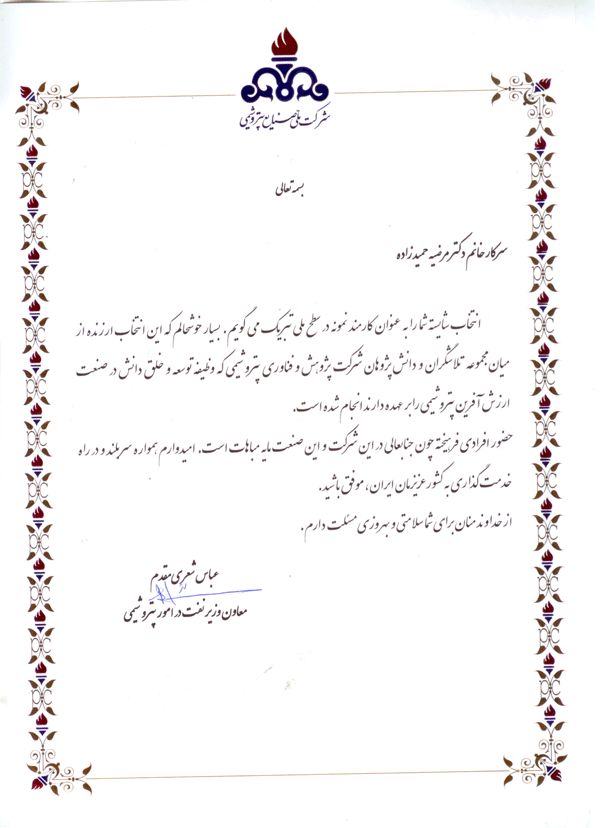 شرکت ملی صنایع پتروشیمی
بسمه تعالی
سرکار خانم دکتر مرضیه حمیدزاده
انتخاب شایسته شما را به عنوان کارمند نمونه در سطح ملی تبریک می گویم. بسیار خوشحالم که این انتخاب ارزنده از
میان مجموعه تلاشگران و دانش پژوهان شرکت پژوهش و فناوری پتروشیمی که وظیفه توسعه و خلق دانش در صنعت
ارزش آفرین پتروشیمی را بر عهده دارند انجام شده است.
حضور افرادی فرهیخته چون جنابعالی در این شرکت و این صنعت مایه مباهات است. امیدوارم همواره سربلند و در راه
خدمت گذاری به کشور عزیزمان ایران، موفق باشید.
از خداوند منان برای شما سلامتی و بهروزی مسئلت دارم.
عباس شعری مقدم
معاون وزیر نفت در امور پتروشیمی